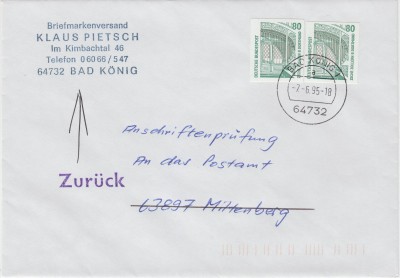 Briefmarkenversand
KLAUS PIETSCH
Im Kimbachtal 46
Telefon 06066/547
64732 BAD KÖNIG
80
80
DEUTSCHE BUNDESPOST
BAD KÖNIG 1
-7.-6.95-18
64732
Anschriftenprüfung
An das Postamt
Zurück
63897 Miltenberg